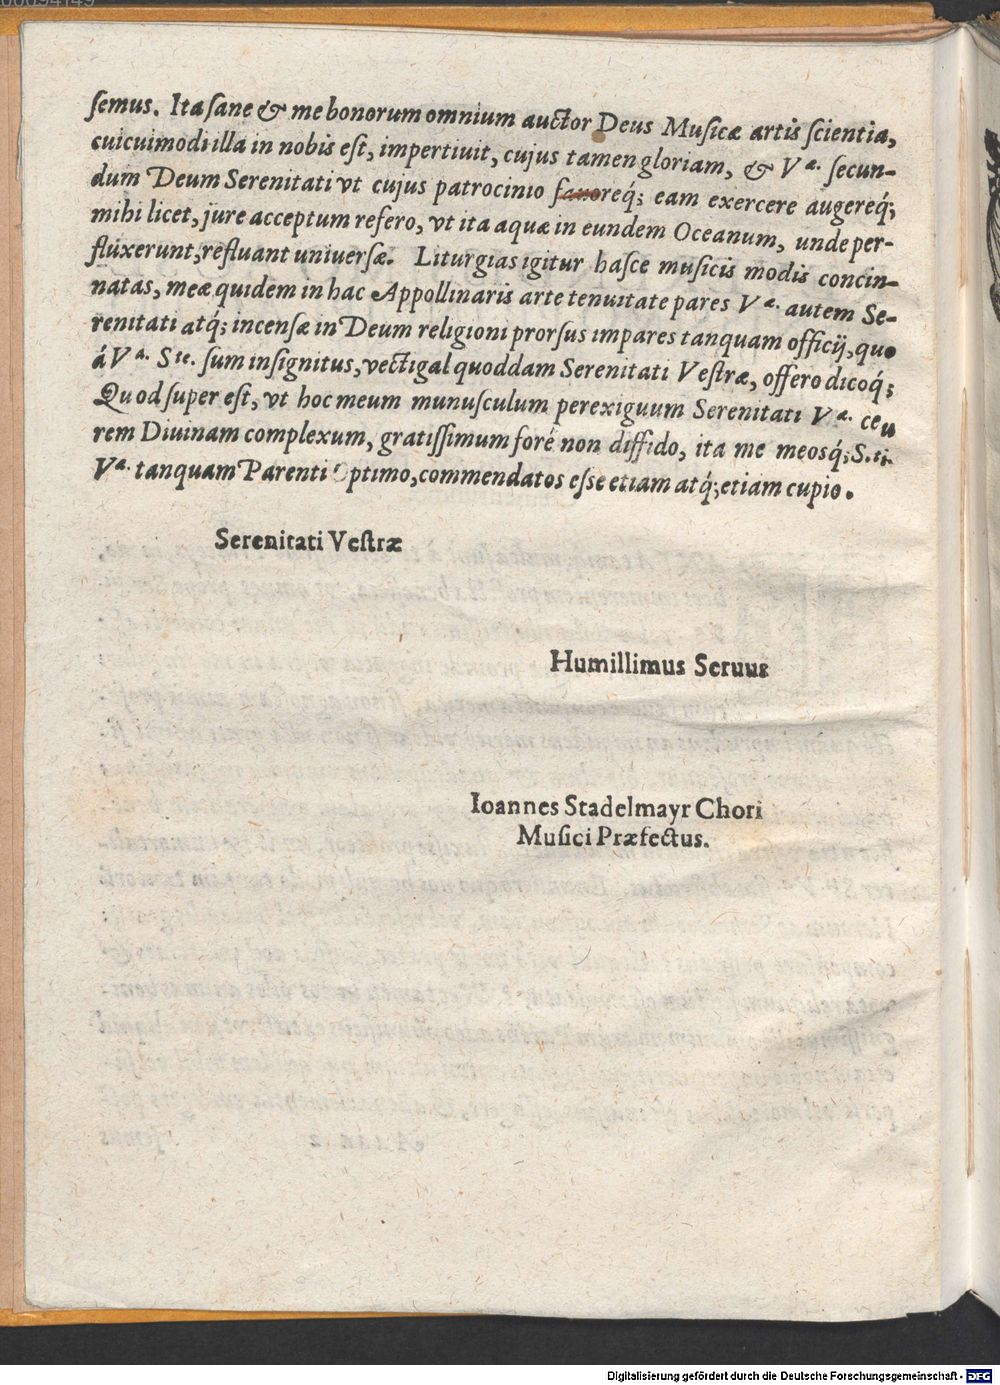 ſemus. Ita ſane & me bonorum omnium auctor Deus Muſicæ artis ſcientia,
cuicuimodi illa in nobis eſt, impertiuit, cujus tamen gloriam, & Vᵃ. ſecun-
dum Deum Serenitati vt cujus patrocinio favoreq́; eam exercere augereq́;
mihi licet, jure acceptum refero, vt ita aquæ in eundem Oceanum, unde per-
fluxerunt, refluant univerſæ. Liturgias igitur haſce muſicis modis concin-
natas, meæ quidem in hac Appollinaris arte tenuitate pares Vᵃ. autem Se-
renitati atq́; incenſæ in Deum religioni prorſus impares tanquam officij, quo
á Vᵃ. Sᵗᵉ. ſum inſignitus, vectigal quoddam Serenitati Veſtræ, offero dicoq́;
Quod ſuper eſt, vt hoc meum munuſculum perexiguum Serenitati Vᵃ. ceu
rem Diuinam complexum, gratiſſimum foré non diffido, ita me meosq́; S.ti.
Vᵃ. tanquam Parenti Optimo, commendatos eſse etiam atq́; etiam cupio.
Serenitati Veſtræ
Humillimus Seruus
Ioannes Stadelmayr Chori
Muſici Præfectus.
Digitalisierung gefördert durch die Deutsche Forschungsgemeinschaft - DFG